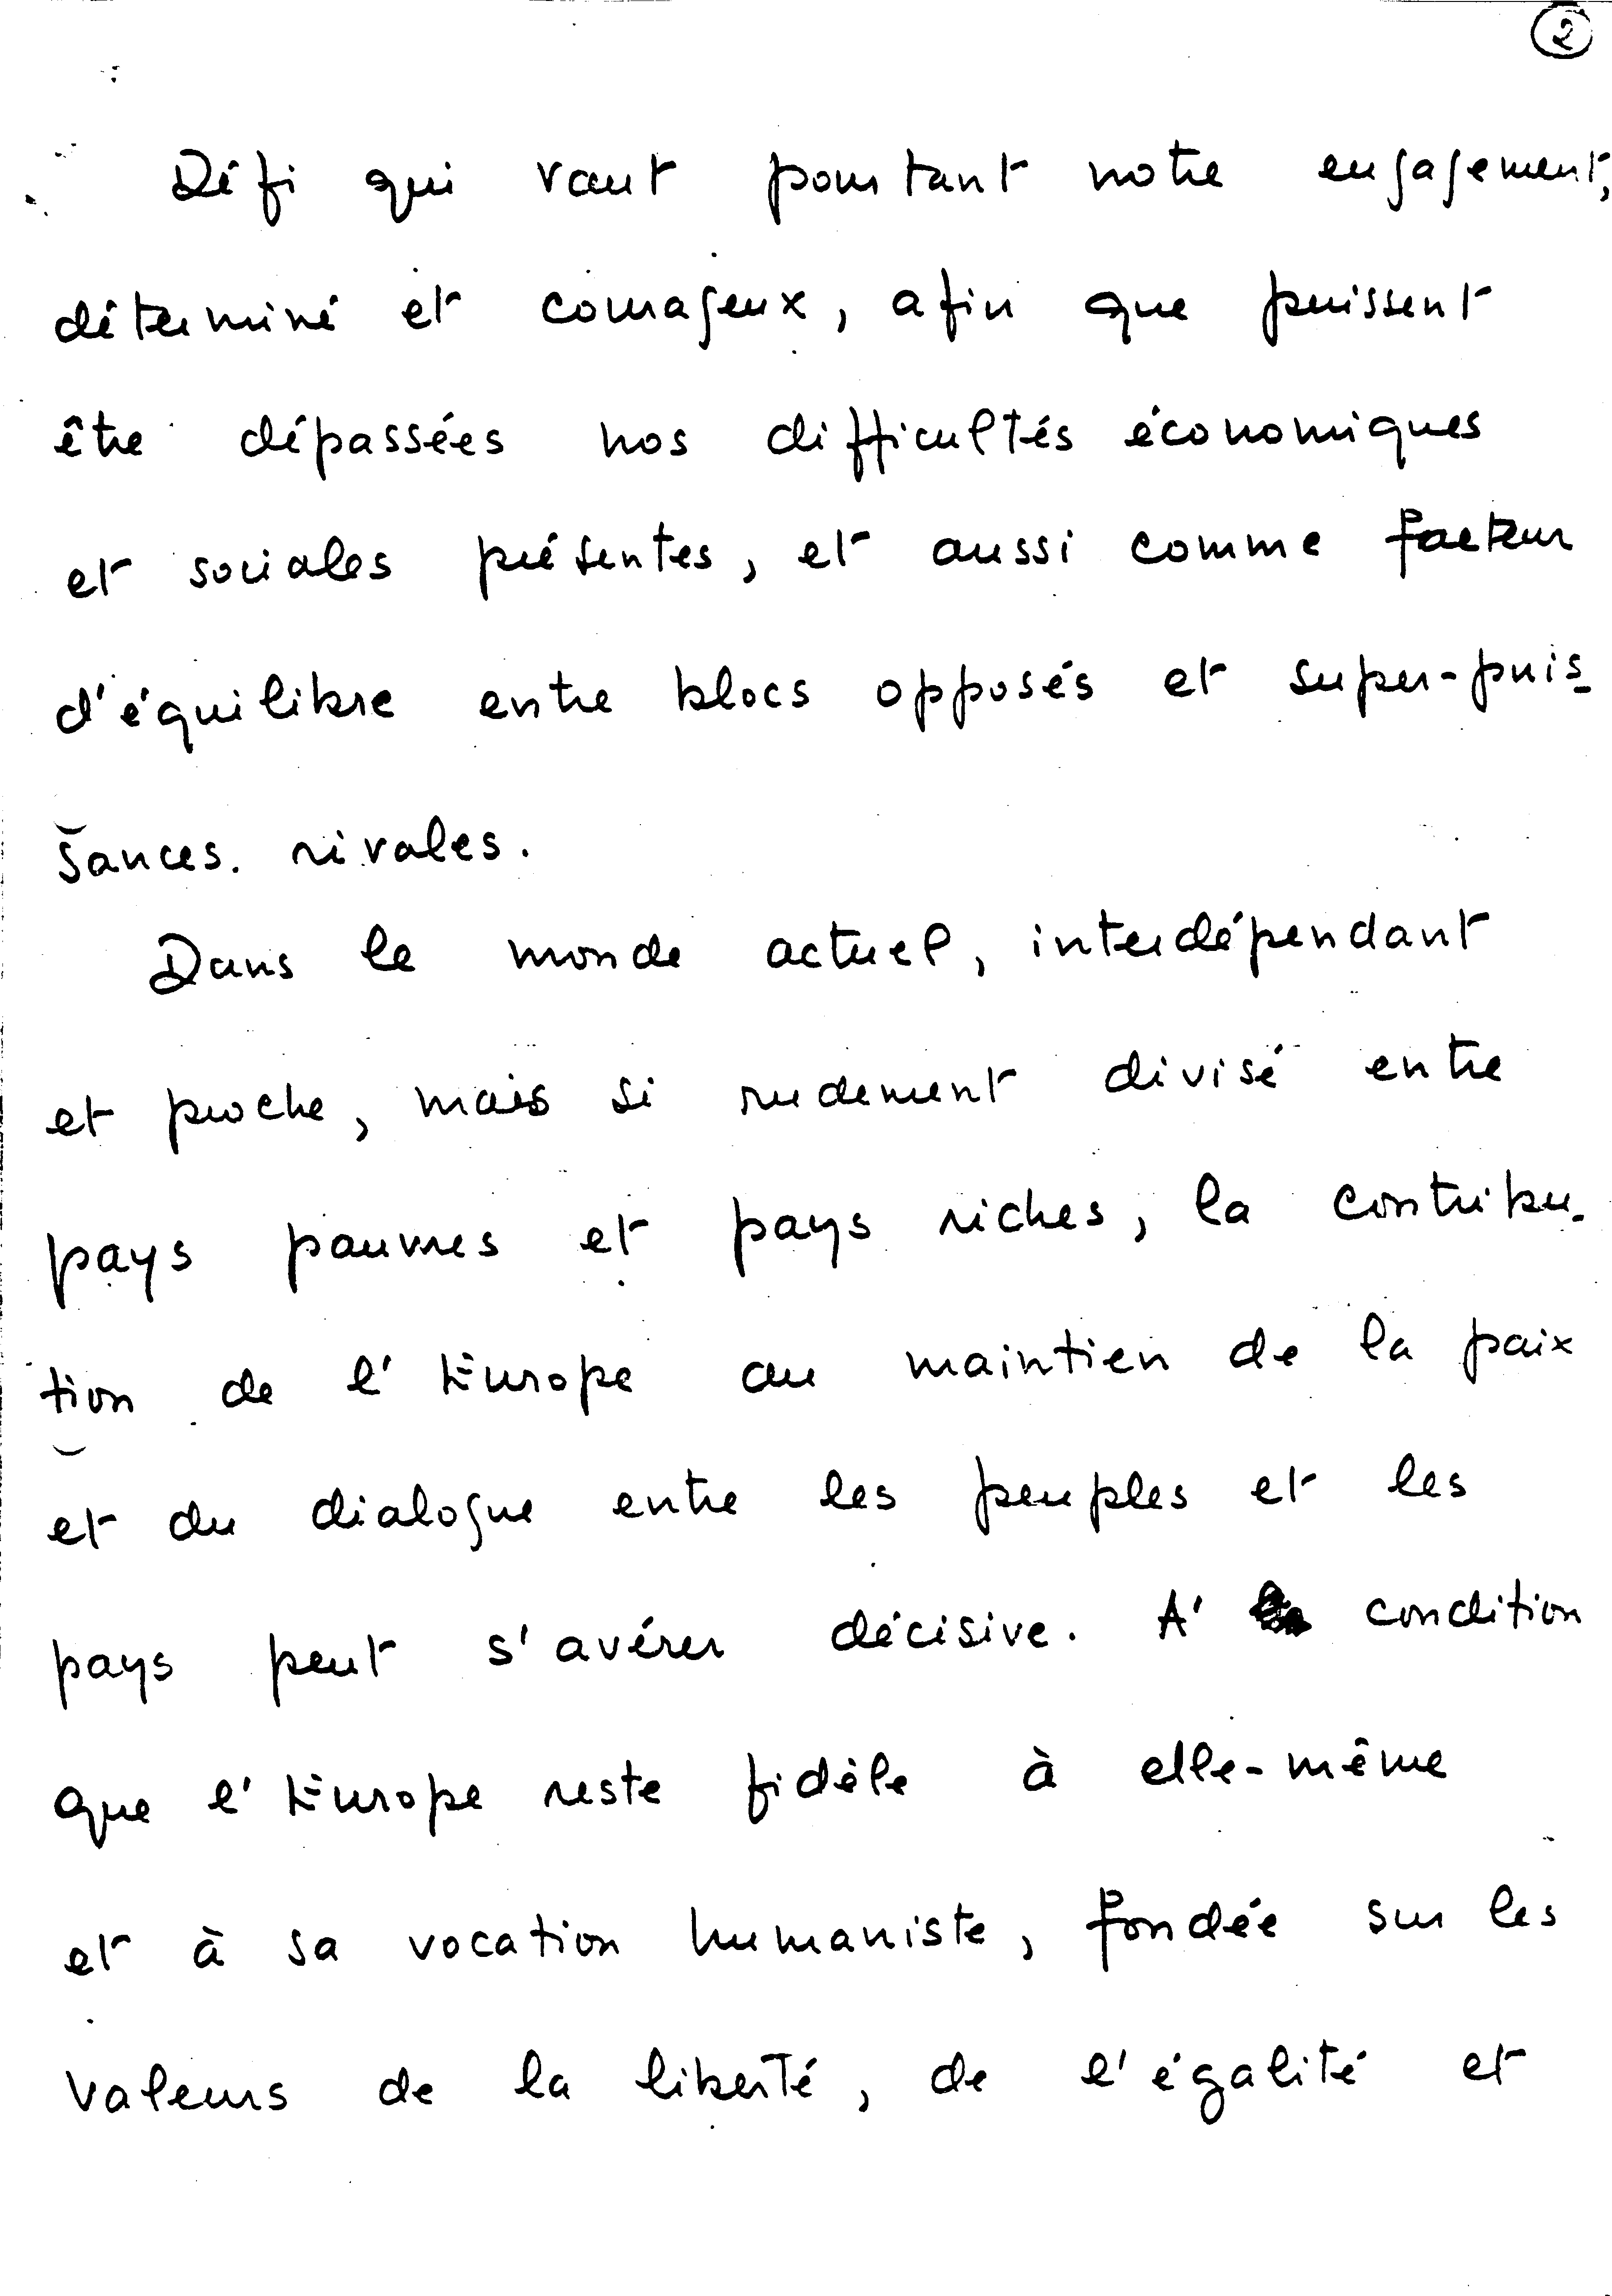 2
Défi qui vaut pourtant notre engagement,
déterminé et courageux, afin que puissent
être dépassées nos difficultés économiques
et sociales présentes, et aussi comme facteur
d'équilibre entre blocs opposés et super-puis-
sances rivales.
Dans le monde actuel, interdépendant
et proche, mais si rudement divisé entre
pays pauvres et pays riches, la contribu-
tion de l'Europe au maintien de la paix
et du dialogue entre les peuples et les
pays peut s'avérer décisive. A' condition
que l'Europe reste fidèle à elle-même
et à sa vocation humaniste, fondée sur les
valeurs de la liberté, de l'égalité et